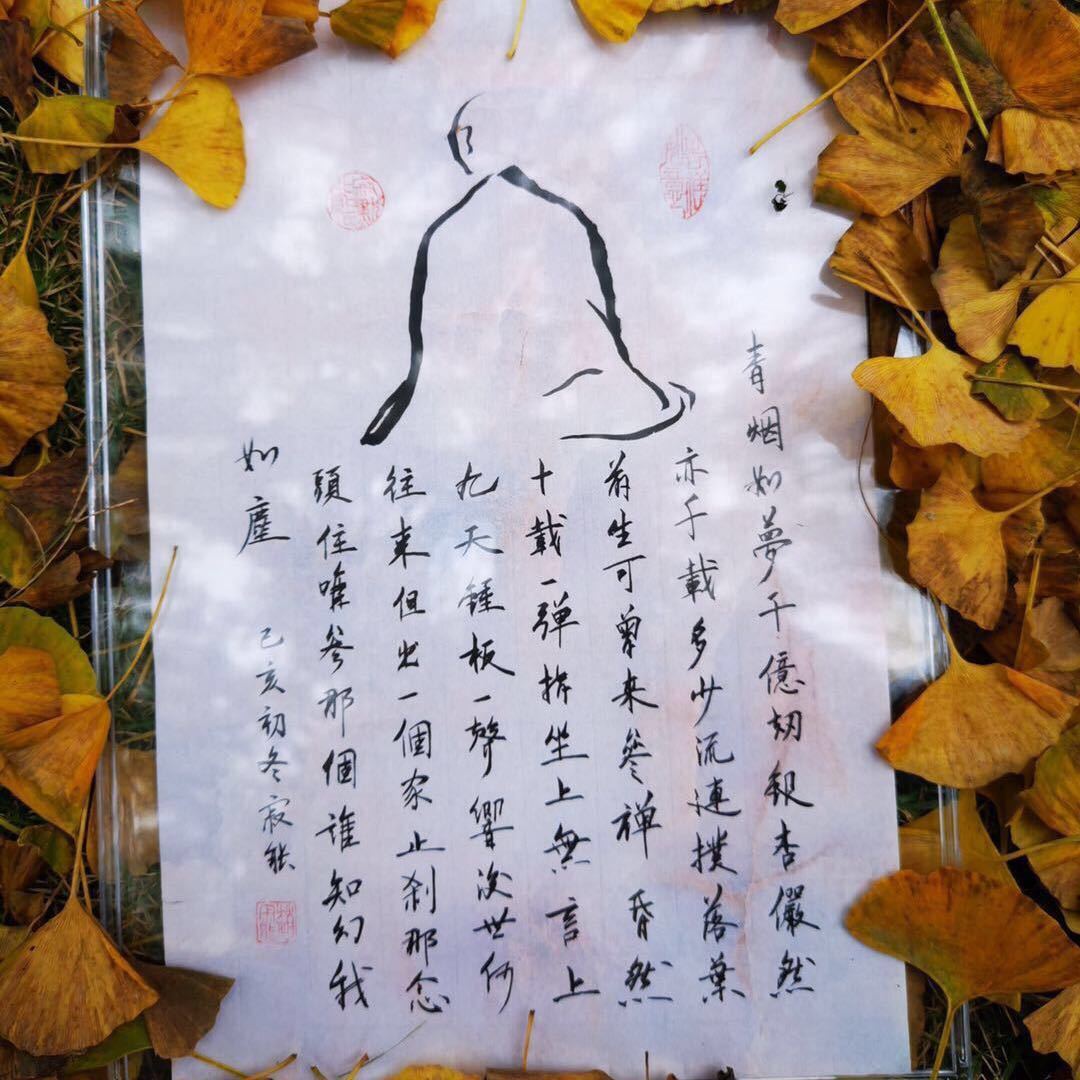 青烟如夢千億劫銀杏儼然
亦千載多少流連撲落葉
前生可曾来參禅昏然
十載一弹指坐上無言上
九天鍾板一聲響世何
往来但出一個家止刹那念
頭住參那個誰知幻我
如塵
己亥初冬寂能